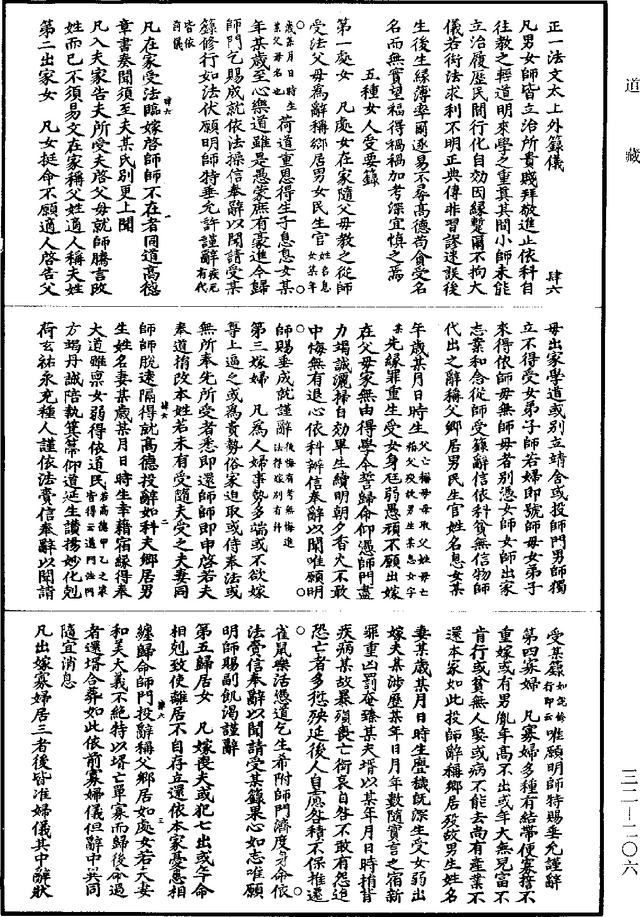 道藏
正一法文太上外籙儀　肆六
凡男女師皆立治所貴賤拜敬進止依科自
往教之輕道明來學之重真其間小師未能
立治履歷民間行化自効因緣蹔爾不拘大
儀若術法求利不明正典傳非習謬迷誤後
生後生緣薄率爾逐易不尋高德苟貪受名
名而無實望福得禍禍加考深宜慎之焉
五種女人受要籙
第一處女　凡處女在家隨父母教之從師
受法父母為辭稱鄉居男女民生官姓名息女某年
歲某月日時生某父母名也荷道重恩得生子息息女某
年某歲至心樂道雖是愚蒙庶有豪進今歸
師門乞賜成就依法操信奉辭以聞請受某
籙修行如法伏願明師特垂允許謹辭疾无有代
皆依前儀
凡在家受法臨嫁啓師師不在者同道高德
章書奏聞須至夫某氏別更上聞
凡入夫家告夫所受夫啓父母就師騰言改
姓而已不須易文在家稱父姓適人稱夫姓
第二出家女　凡女挺命不願適人啓告父
母出家學道或別立靖舍或投師門男師獨
立不得受女弟子師若婦即號師母女弟子
來得依師母無師母者別憑女師女師出家
志業和念從師受籙辭信依科貧無信物師
代出之辭稱父鄉居男民生官姓名息女某
年歲某月日時生父亡稱母母取父姓母亡稱父父歿歿男生某息女字
某先緣罪重生受女身尫弱愚頑不願出嫁
在父母家無由得學今誓歸命仰憑師門盡
力竭誠灑掃自効畢生續明朝夕香火不敢
中悔無有退心依科辦信奉辭以聞唯願明
師賜垂成就謹辭後悔有考無悔進法得嫁別有升
第三嫁婦　凡為人婦事勢多端或不欲嫁
尊上逼之或為貴勢俗家迫取或侍奉法或
無所奉先所受者悉即還師師即申啓若夫
奉道捎改本姓若未有受隨夫受之夫妻同
師師脫遠隔得就高德投辭如科夫鄉居男
生姓名妻某歲某月日時生幸藉宿緣得奉
大道雖稟女弱得依道民若高德甲乙之家皆得云道門法門
方竭丹誠陪執箕箒仰道延生讚揚妙化剋
荷玄祐永充種人謹依法賫信奉辭以聞請
受某籙如說餘行印云唯願明師特賜垂允謹辭
第四寡婦　凡寡婦多種有結帶便寡誓不
重嫁或有男胤年高不出或年大無兒富不
肯行或貧無人娶或病不能去尚有產業不
還本家如此投師辭稱鄉居歿故男生姓名
妻某歲某月日時生亹機既深生受女弱出
嫁夫某涉歷某年日月年數隨實言之宿新
罪重凶罰奄臻某夫壻以某年月日時捎背
疾病某故暴殞喪亡銜哀自咎不敢有怨追
恐亡者多愆殃延後人自慮咎積不保推還
雀鼠樂活憑道乞生希附師門濟度身命依
法賫信奉辭以聞請受某籙果心如志唯願
明師賜副飢渴謹辭
第五歸居女　凡嫁喪夫或犯七出或午命
相剋致使離居不自存立還依本家憂患相
纏歸命師門投辭稱父鄉居如處女若夫妻
和美大義不絶特以壻亡單寡而歸後命過
者還壻合葬如此依前寡婦儀但辭中共同
隨宜消息
凡出嫁寡婦居三者後皆准婦儀其中辭狀
三二—二〇六